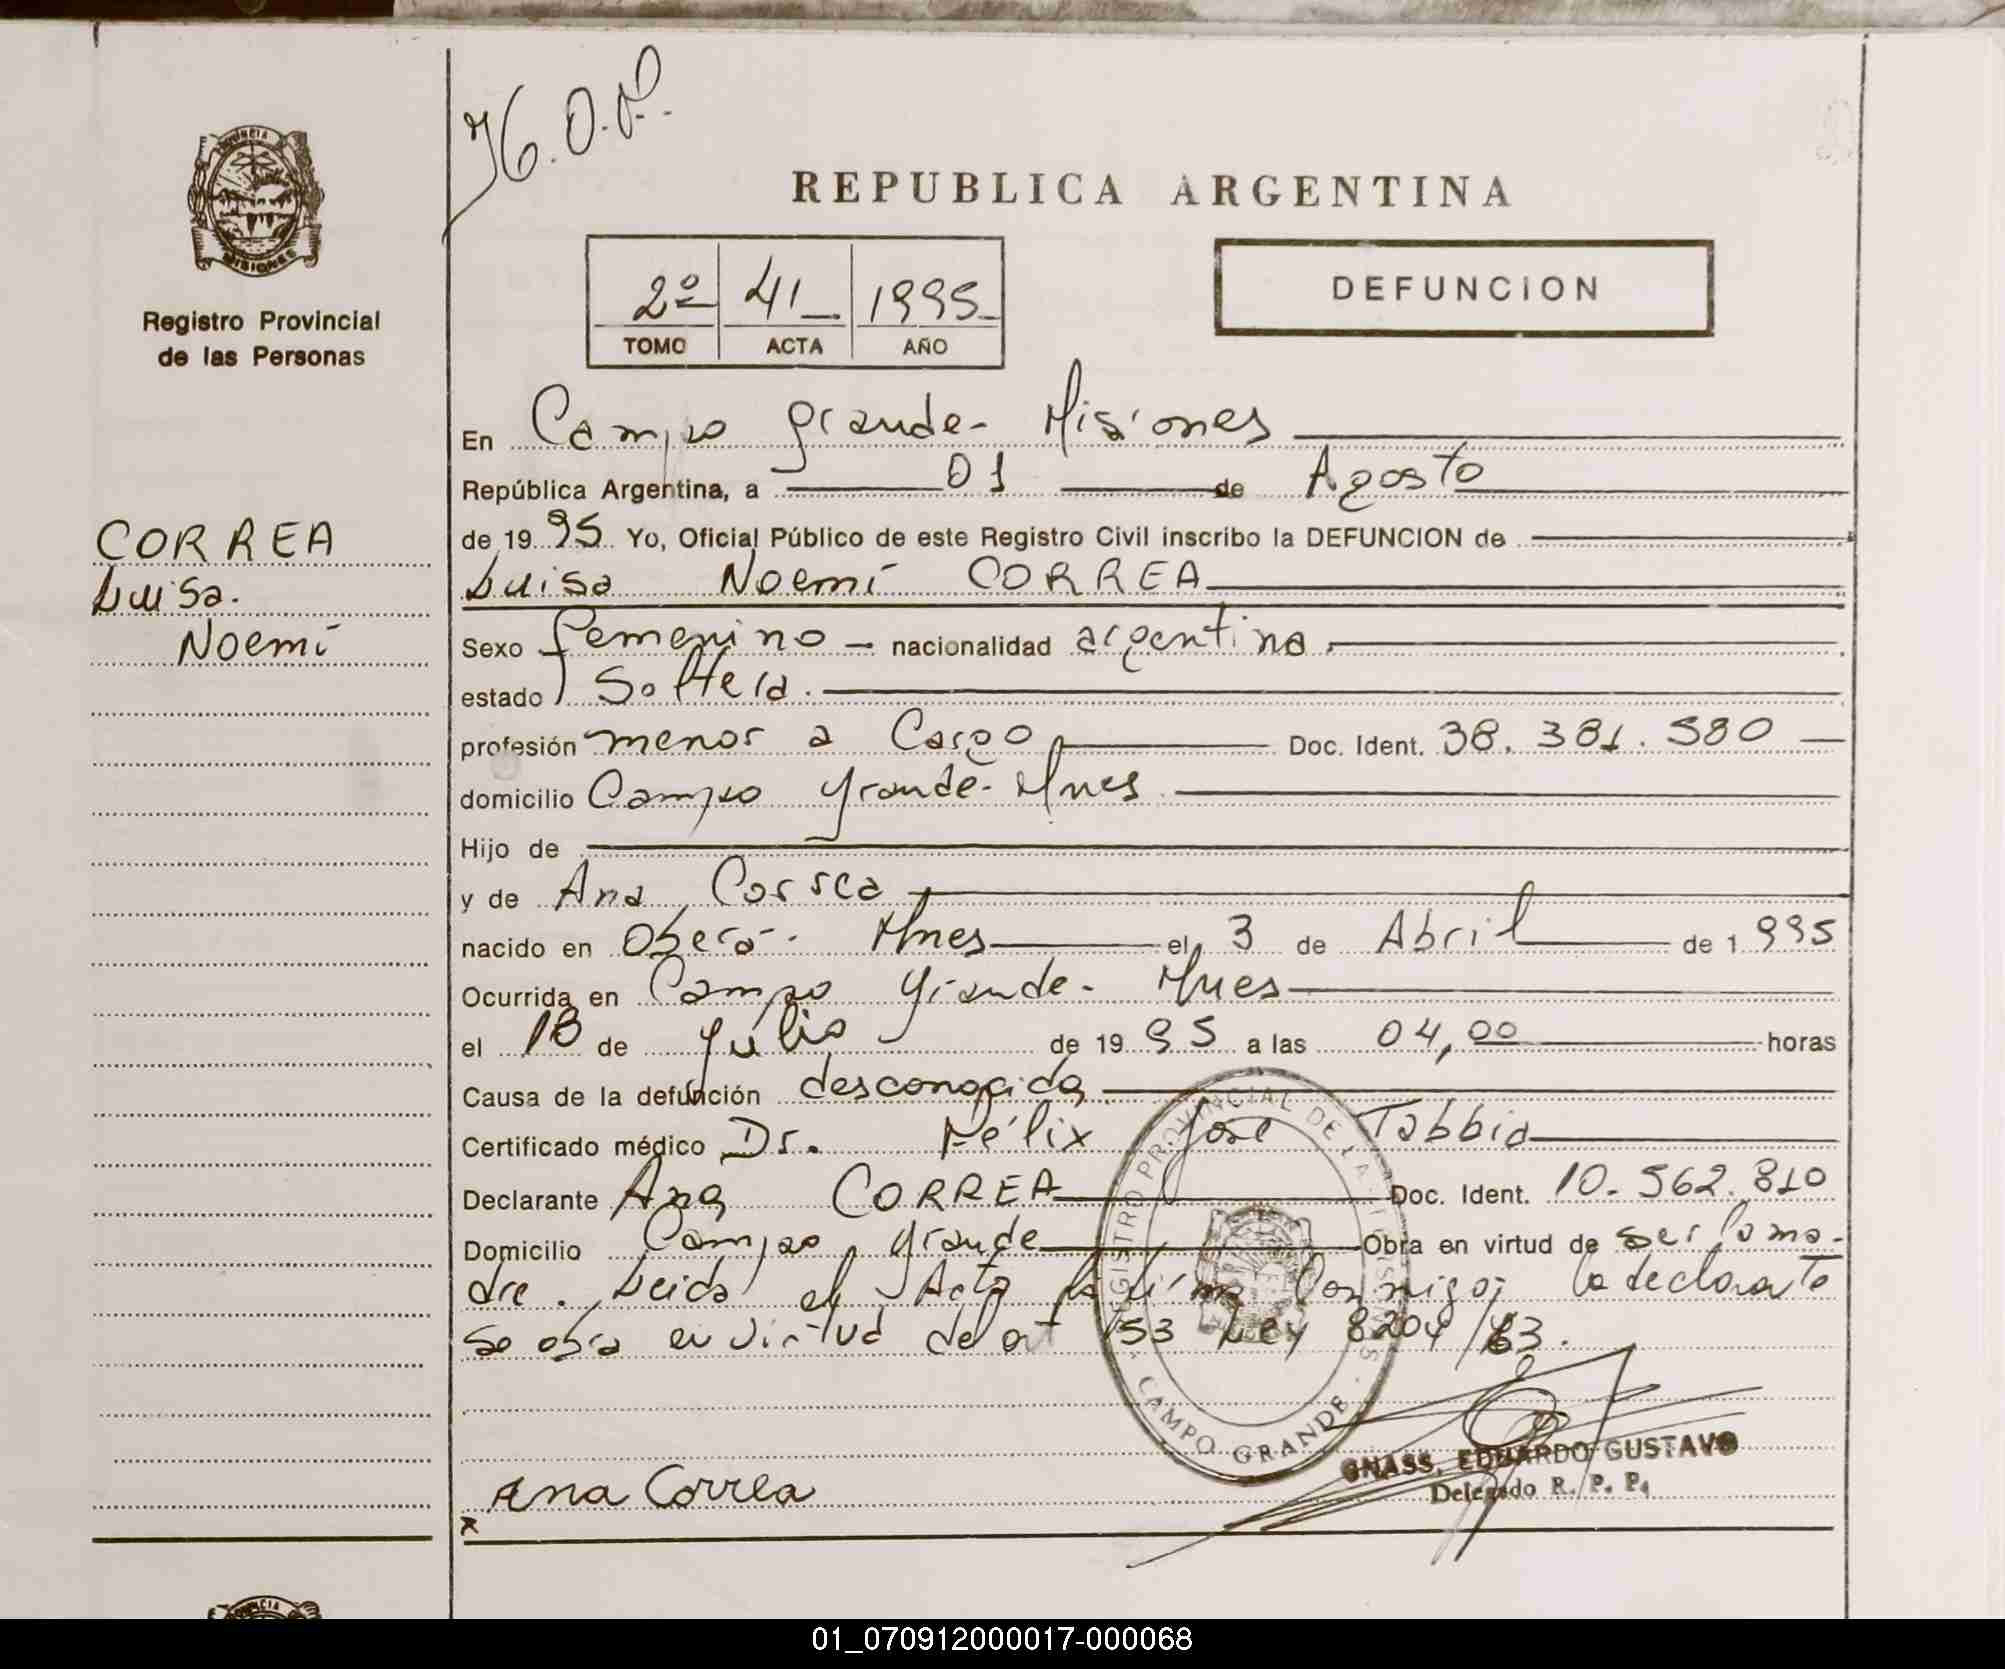 H.O.P.
PROVINCIA
MISIONES
Registro Provincial
de las Personas
REPUBLICA ARGENTINA
2º 41 1995
TOMO ACTA AÑO
DEFUNCION
En Campo Grande - Misiones
República Argentina, a 01 de Agosto
de 19 95 Yo, Oficial Público de este Registro Civil inscribo la DEFUNCION de
Luisa Noemí CORREA
CORREA
Luisa.
Noemí
Sexo femenino - nacionalidad argentina
estado Soltera.
profesión menor a Cargo Doc. Ident. 38.381.580
domicilio Campo Grande - Mnes
Hijo de
y de Ana Correa
nacido en Oberá - Mnes el 3 de Abril de 1 995
Ocurrida en Campo Grande - Mnes
el 18 de Julio de 19 95 a las 04,00 horas
Causa de la defunción desconocida
Certificado médico Dr. Félix José Tabbia
Declarante Ana CORREA Doc. Ident. 10.562.810
Domicilio Campo Grande Obra en virtud de ser la ma-
dre. Leida el Acta la firma conmigo; la declarante
se obra en virtud del art 53 Ley 8204/63.
REGISTRO PROVINCIAL DE LAS PERSONAS
CAMPO GRANDE
GNASS, EDUARDO GUSTAVO
Delegado R. P. P.
Ana Correa
x
01_070912000017-000068